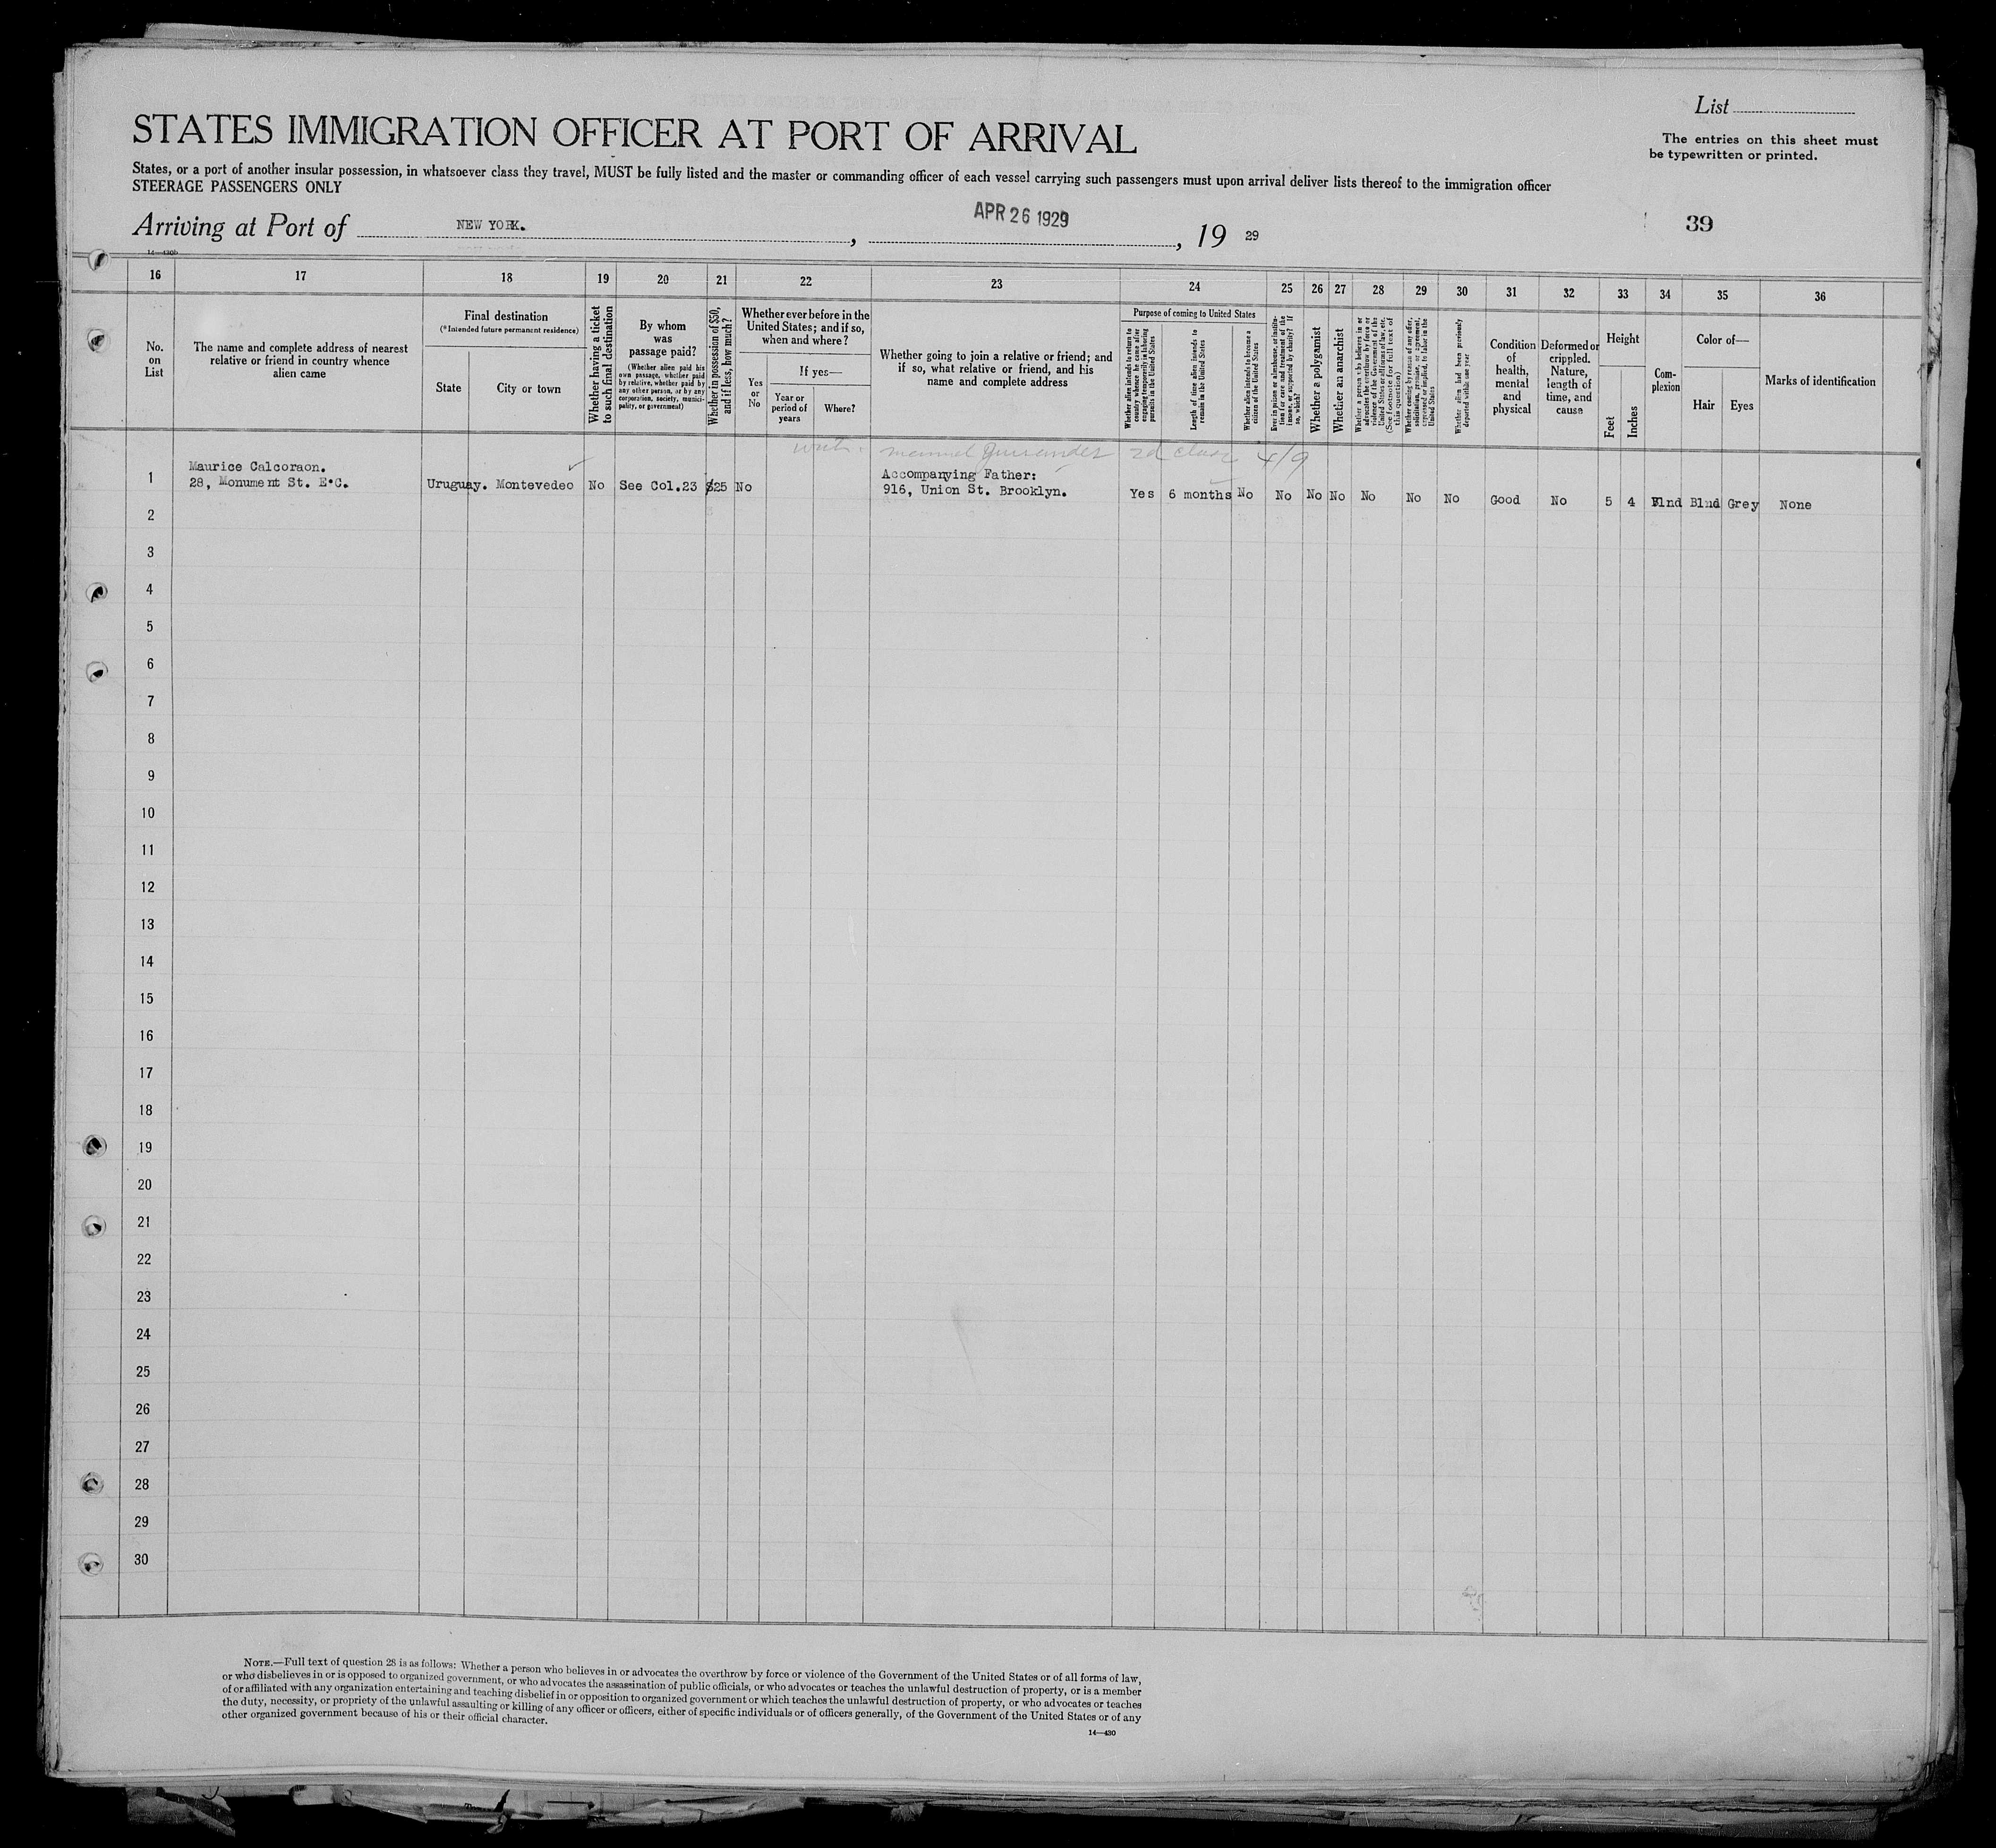 List
STATES IMMIGRATION OFFICER AT PORT OF ARRIVAL
The entries on this sheet must
be typewritten or printed.
States, or a port of another insular possession, in whatsoever class they travel, MUST be fully listed and the master or commanding officer of each vessel carrying such passengers must upon arrival deliver lists thereof to the immigration officer
STEERAGE PASSENGERS ONLY
Arriving at Port of NEW YORK. , APR 26 1929 , 19 29
39
14—430b
16 17 18 19 20 21 22 23 24 25 26 27 28 29 30 31 32 33 34 35 36
No.
on
List
The name and complete address of nearest
relative or friend in country whence
alien came
Final destination
(*Intended future permanent residence)
State
City or town
Whether having a ticket
to such final destination
By whom
was
passage paid?
(Whether alien paid his
own passage, whether paid
by relative, whether paid by
any other person, or by any
corporation, society, munici-
pality, or government)
Whether in possession of $50,
and if less, how much?
Whether ever before in the
United States; and if so,
when and where?
Yes
or
No
If yes—
Year or
period of
years
Where?
Whether going to join a relative or friend; and
if so, what relative or friend, and his
name and complete address
Purpose of coming to United States
Whether alien intends to return to
country whence he came after
engaging temporarily in laboring
pursuits in the United States
Length of time alien intends to
remain in the United States
Whether alien intends to become a
citizen of the United States
Ever in prison or almshouse, or institu-
tion for care and treatment of the
insane, or supported by charity? If
so, which?
Whether a polygamist
Whether an anarchist
Whether a person who believes in or
advocates the overthrow by force or
violence of the Government of the
United States or all forms of law, etc.
(See footnote for full text of
this question)
Whether coming by reason of any offer,
solicitation, promise, or agreement,
expressed or implied, to labor in the
United States
Whether alien had been previously
deported within one year
Condition
of
health,
mental
and
physical
Deformed or
crippled.
Nature,
length of
time, and
cause
Height
Feet
Inches
Com-
plexion
Color of—
Hair
Eyes
Marks of identification
with 2d class 4/9
1 Maurice Calcoraon.
28, Monument St. E.C.
Uruguay. Montevedeo No See Col.23 $25 No
Accompanying Father:
916, Union St. Brooklyn.
Yes 6 months No No No No No No No Good No 5 4 Blnd Blnd Grey None
2
3
4
5
6
7
8
9
10
11
12
13
14
15
16
17
18
19
20
21
22
23
24
25
26
27
28
29
30
NOTE.—Full text of question 28 is as follows: Whether a person who believes in or advocates the overthrow by force or violence of the Government of the United States or of all forms of law,
or who disbelieves in or is opposed to organized government, or who advocates the assassination of public officials, or who advocates or teaches the unlawful destruction of property, or is a member
of or affiliated with any organization entertaining and teaching disbelief in or opposition to organized government or which teaches the unlawful destruction of property, or who advocates or teaches
the duty, necessity, or propriety of the unlawful assaulting or killing of any officer or officers, either of specific individuals or of officers generally, of the Government of the United States or of any
other organized government because of his or their official character.
14—430